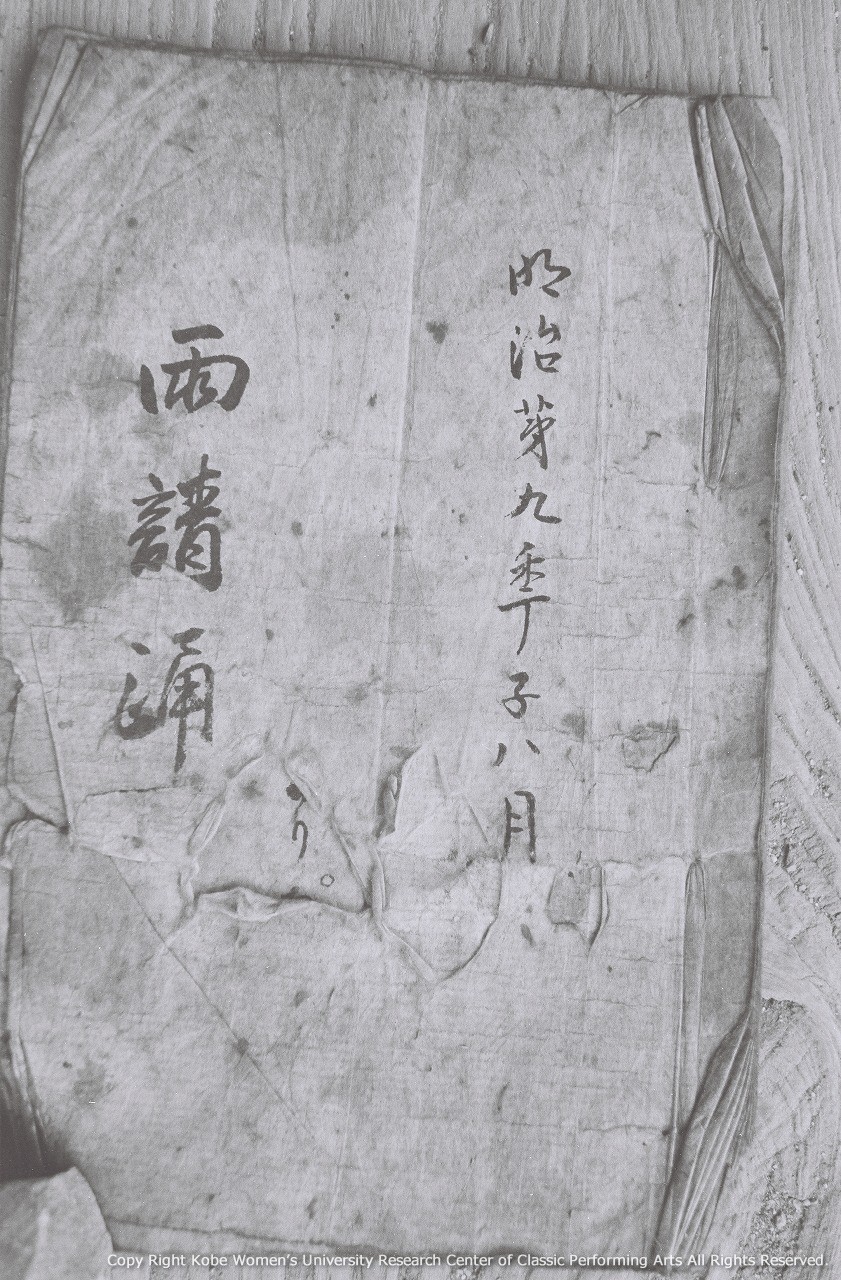 明治第九季子八月
雨請踊
Copy Right Kobe Women's University Research Center of Classic Performing Arts All Rights Reserved.